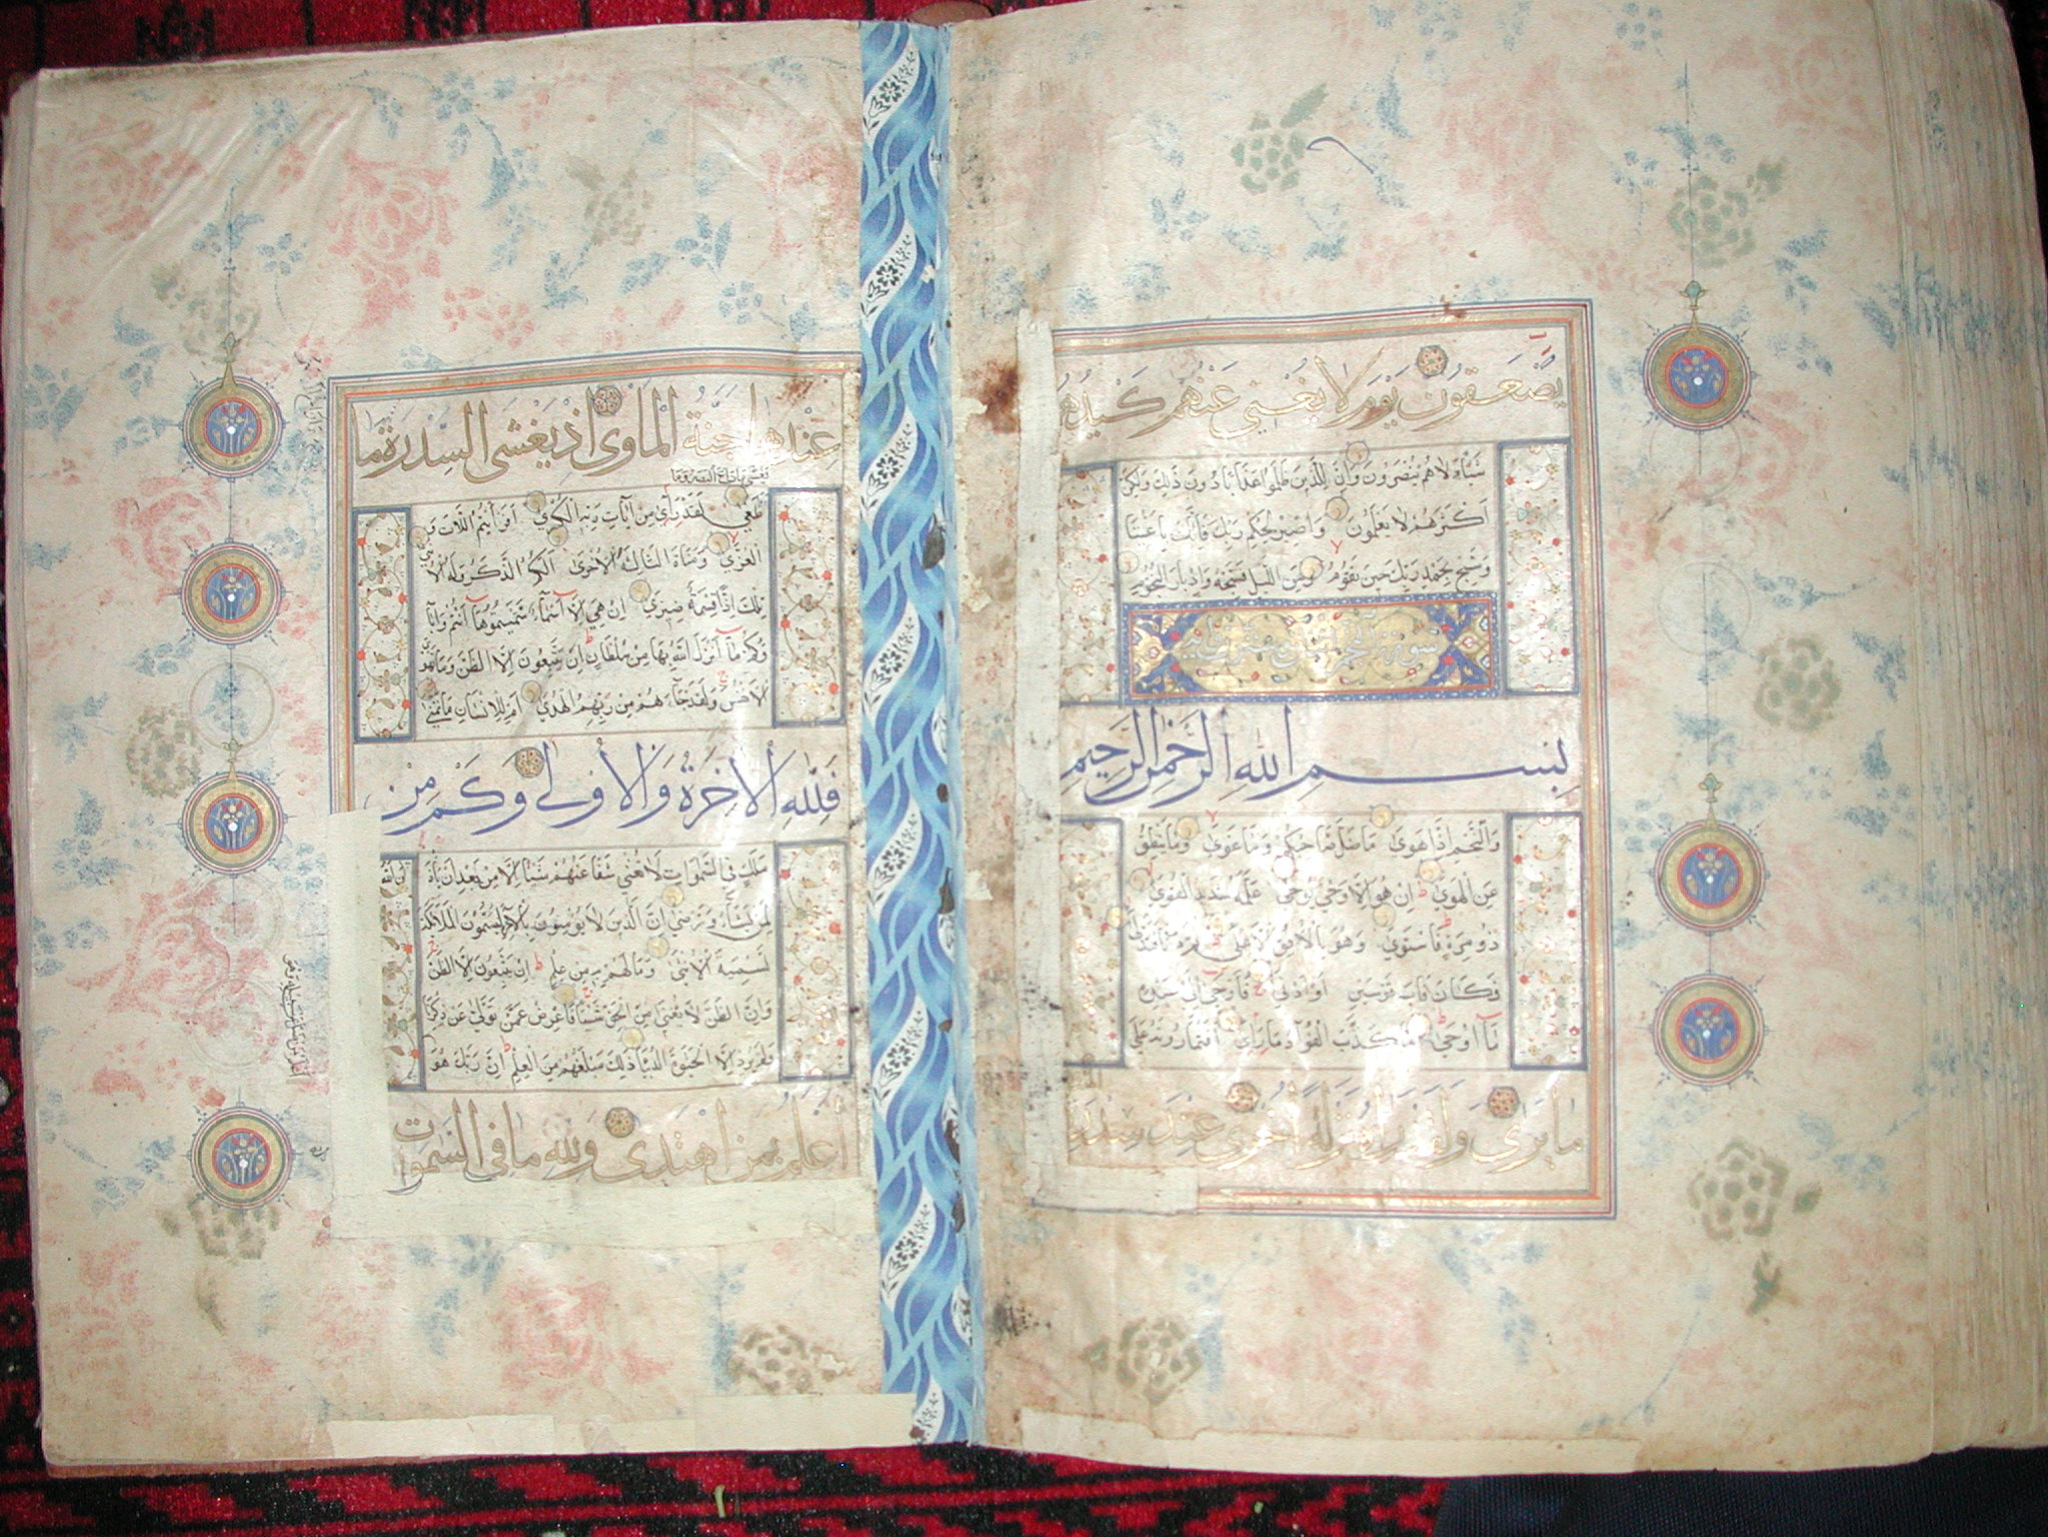 يصعقون يوم لا يغني عنهم كيدهم
شيئا ولا هم ينصرون وان للذين ظلموا عذابا دون ذلك ولكن
اكثرهم لا يعلمون واصبر لحكم ربك فانك باعيننا
وسبح بحمد ربك حين تقوم ومن الليل فسبحه وادبار النجوم
سورة النجم
بسم الله الرحمن الرحيم
والنجم اذا هوى ما ضل صاحبكم وما غوى وما ينطق
عن الهوى ان هو الا وحي يوحى علمه شديد القوى
ذو مرة فاستوى وهو بالافق الاعلى ثم دنا فتدلى
فكان قاب قوسين او ادنى فاوحى الى عبده
ما اوحى ما كذب الفؤاد ما راى افتمارونه على
ما يرى ولقد راه نزلة اخرى عند سدرة
عندها جنة الماوى اذ يغشى السدرة ما
يغشى ما زاغ البصر وما
طغى لقد راى من ايات ربه الكبرى افرايتم اللات و
العزى ومناة الثالثة الاخرى الكم الذكر وله الانثى
تلك اذا قسمة ضيزى ان هي الا اسماء سميتموها انتم واباؤ
وكم ما انزل الله بها من سلطان ان يتبعون الا الظن وما تهوى
الانفس ولقد جاءهم من ربهم الهدى ام للانسان ما تمنى
فلله الاخرة والاولى وكم من
ملك في السموات لا تغني شفاعتهم شيئا الا من بعد ان ياذن الله
لمن يشاء ويرضى ان الذين لا يؤمنون بالاخرة ليسمون الملائكة
تسمية الانثى وما لهم به من علم ان يتبعون الا الظن
وان الظن لا يغني من الحق شيئا فاعرض عمن تولى عن ذكرنا
ولم يرد الا الحيوة الدنيا ذلك مبلغهم من العلم ان ربك هو
اعلم بمن اهتدى ولله ما في السموات